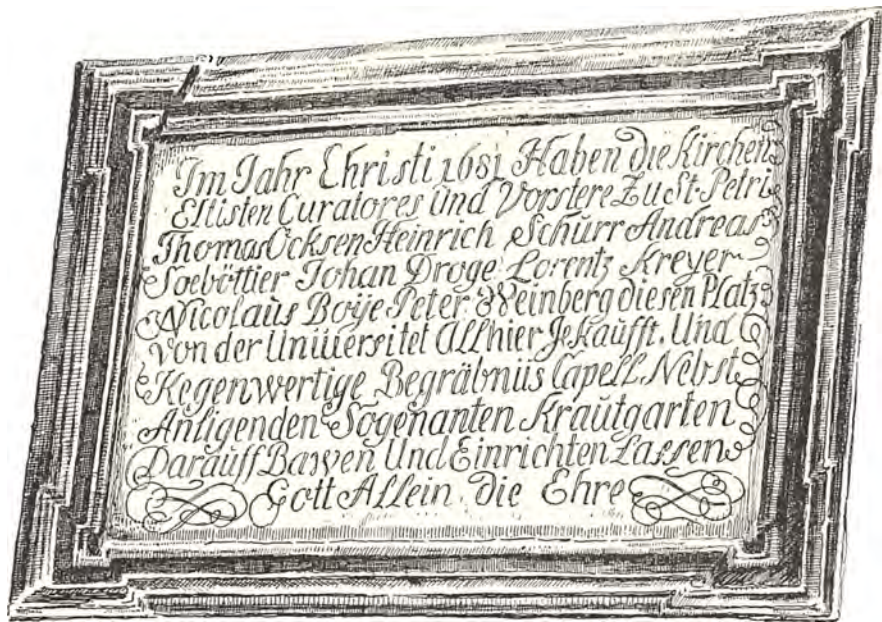 Im Jahr Christi 1681 Haben die Kirchen
Eltisten Curatores Und Vorstere Zu St. Petri
Thomas Ocksen Heinrich Schürr Andreas
Soeböttier Johan Droge Lorentz Kreyer
Nicolaus Boÿe Peter Weinberg diesen Platz
von der Uniüersitet Allhier Jekaüfft. Und
Kegenwertige Begräbnüs Capell Nebst
Anligenden Sogenanten Kraütgarten
Daraüff Bawen Und Einrichten Lassen
Gott Allein die Ehre